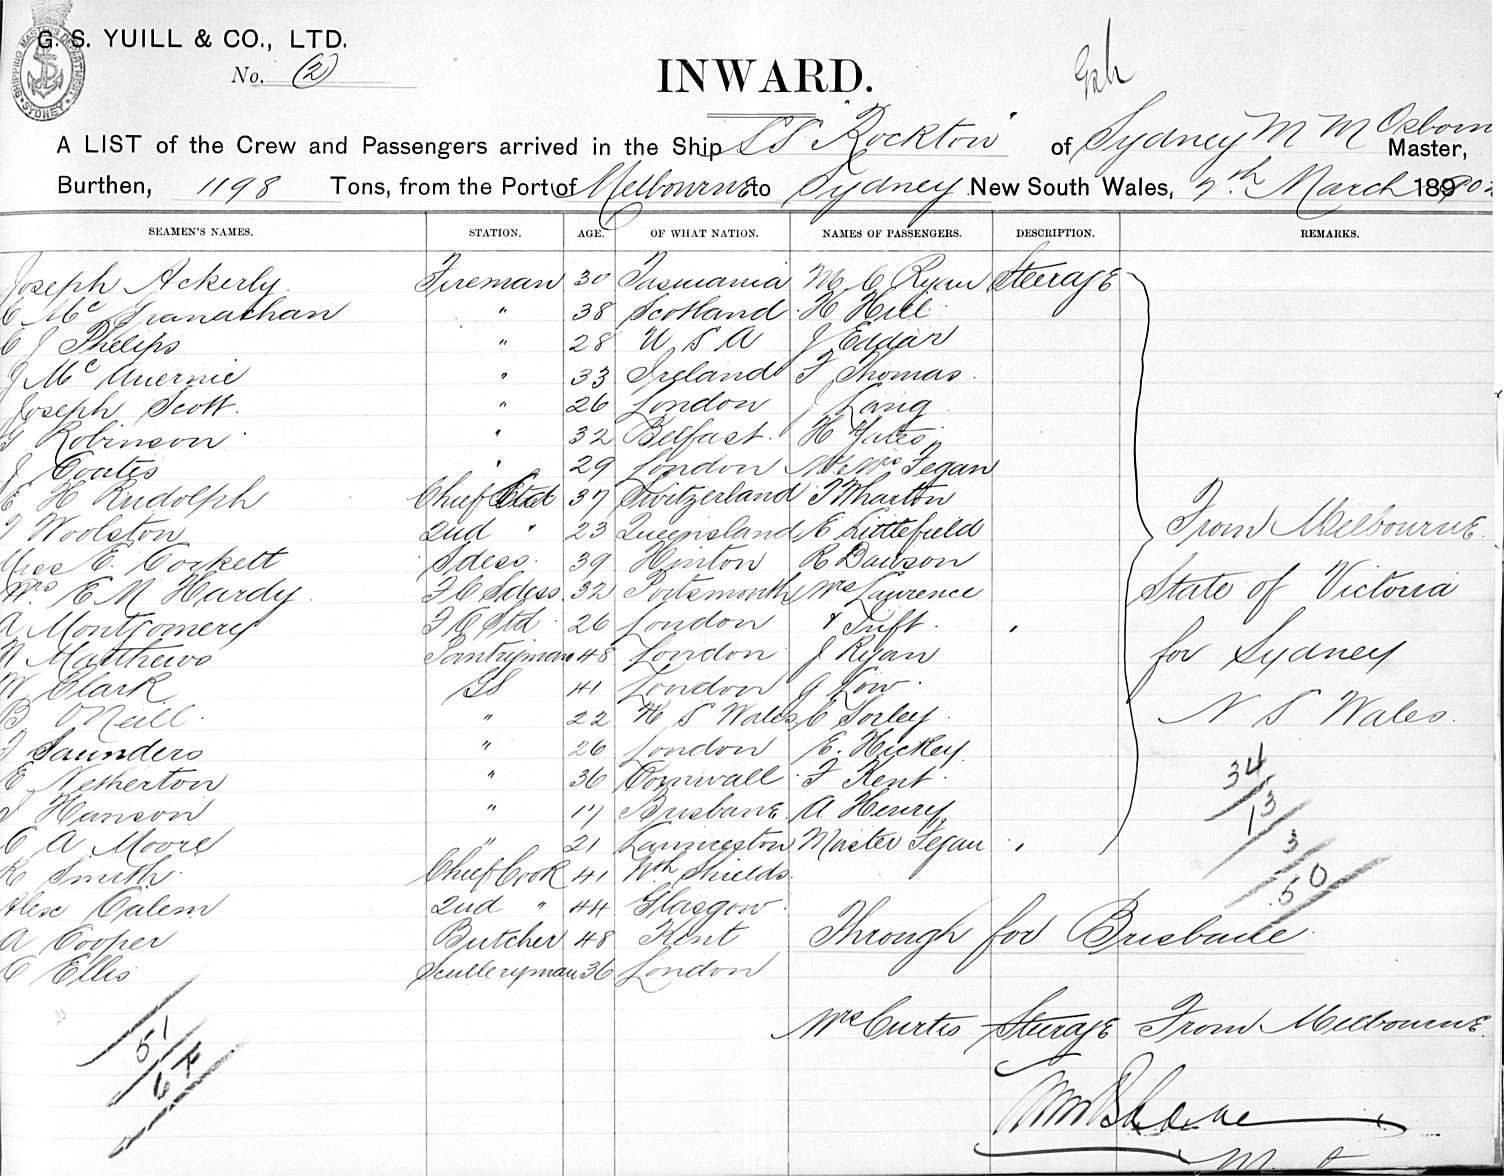 G. S. YUILL & CO., LTD.
No. (2)
INWARD.
SHIPPING MASTER'S DEPARTMENT SYDNEY
A LIST of the Crew and Passengers arrived in the Ship SS "Rockton" of Sydney M M Osborn Master,
Burthen, 1198 Tons, from the Port of Melbourne to Sydney New South Wales, 7th March 189
SEAMEN'S NAMES. STATION. AGE. OF WHAT NATION. NAMES OF PASSENGERS. DESCRIPTION. REMARKS.
Joseph Ackerly Fireman 30 Tasmania M C Ryan Steerage
C Mc Granachan " 38 Scotland H Hill
C J Phelips " 28 U S A J Edgar
J Mc " 33 Ireland F Thomas
Joseph Scott " 26 London J Lang
G Robinson " 32 Belfast H Yates
J Coates " 29 London Mr & Mrs Fegan
E H Rudolph Chief Std 37 Switzerland T Wharton
T Woolston 2nd " 23 Queensland E Littlefield
Miss E. Corkett Sdess. 39 Hinton R Dawson
Mrs E M Hardy F C Sdess 32 Portsmouth Mrs Lawrence
A Montgomery F C Std 26 London & Tuft
W Matthews Pantryman 48 London J Ryan
W Clark GS 41 London J Low
B O'Neill " 22 N S Wales C Sorley
F Saunders " 26 London E. Hickey
E Netherton " 36 Cornwall F Kent
J Hanson " 17 Brisbane A Henry
C A Moore " 21 Launceston Master Fegan
R Smith Chief Cook 41 Nth Shields
Alex Calem 2nd " 44 Glasgow
A Cooper Butcher 48 Kent
C Ellis Sculleryman 36 London
From Melbourne
State of Victoria
for Sydney
N. S Wales.
34
13
3
50
Through for Brisbane
Mrs Curtis Steerage From Melbourne
51
67